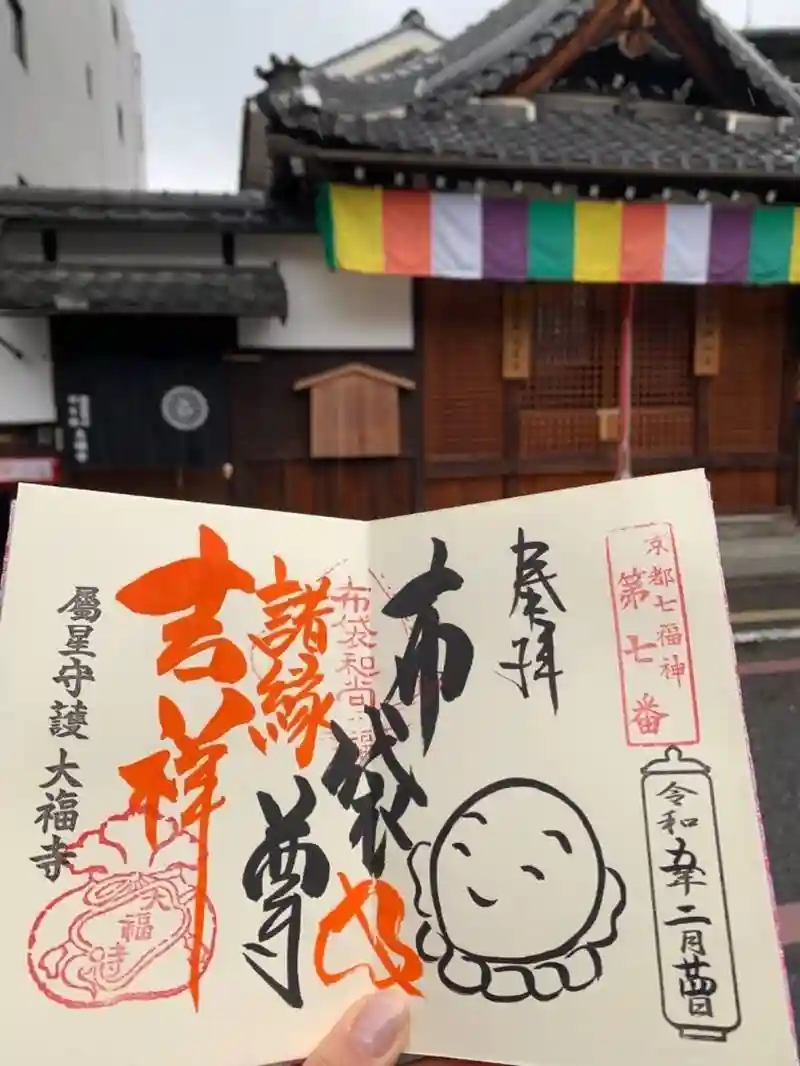 京都七福神
第七番
奉拝
令和五年二月廿四日
布袋尊
布袋和尚
諸縁
吉祥
屬星守護 大福寺
大福寺